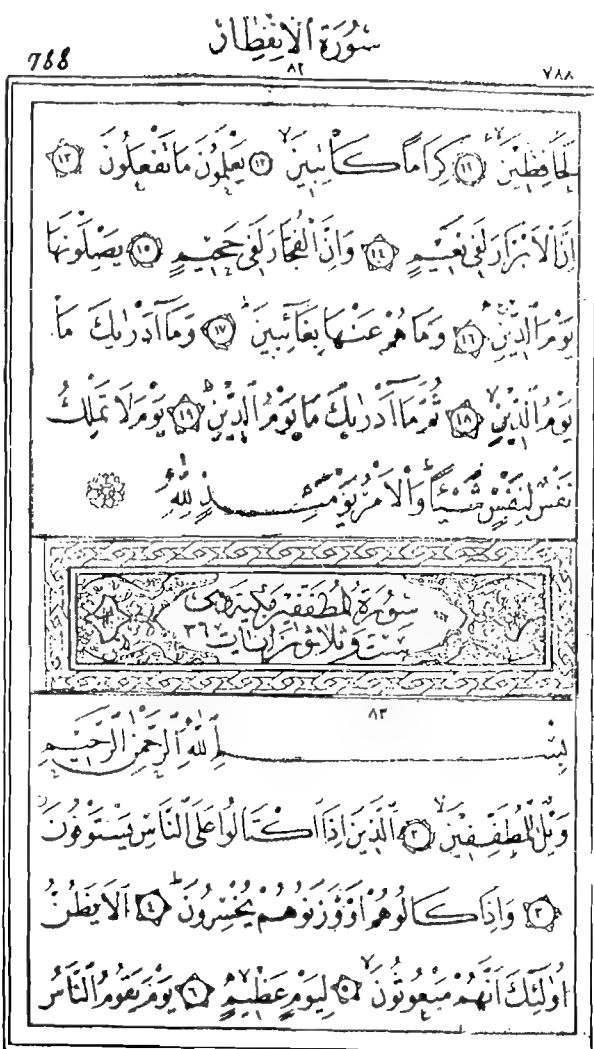 788 سُورَةُ الْاِنْفِطَارِ ٨٢ ٧٨٨
لَحَافِظِينَ ١١ كِرَامًا كَاتِبِينَ ١٢ يَعْلَمُونَ مَا تَفْعَلُونَ ١٣
اِنَّ الْاَبْرَارَ لَفِي نَعِيمٍ ١٤ وَاِنَّ الْفُجَّارَ لَفِي جَحِيمٍ ١٥ يَصْلَوْنَهَا
يَوْمَ الدِّينِ ١٦ وَمَا هُمْ عَنْهَا بِغَآئِبِينَ ١٧ وَمَآ اَدْرٰيكَ مَا
يَوْمُ الدِّينِ ١٨ ثُمَّ مَآ اَدْرٰيكَ مَا يَوْمُ الدِّينِ ١٩ يَوْمَ لَا تَمْلِكُ
نَفْسٌ لِنَفْسٍ شَيْئًا وَالْاَمْرُ يَوْمَئِذٍ لِلّٰهِ
سُورَةُ الْمُطَفِّفِينَ مَكِّيَّةٌ وَهِيَ
سِتٌّ وَثَلَاثُونَ اٰيَاتٍ ٣٦
٨٣
بِسْمِ اللّٰهِ الرَّحْمٰنِ الرَّحِيمِ
وَيْلٌ لِلْمُطَفِّفِينَ ٢ اَلَّذِينَ اِذَا اكْتَالُوا عَلَى النَّاسِ يَسْتَوْفُونَ
٣ وَاِذَا كَالُوهُمْ اَوْ وَزَنُوهُمْ يُخْسِرُونَ ٤ اَلَا يَظُنُّ
اُولٰٓئِكَ اَنَّهُمْ مَبْعُوثُونَ ٥ لِيَوْمٍ عَظِيمٍ ٦ يَوْمَ يَقُومُ النَّاسُ